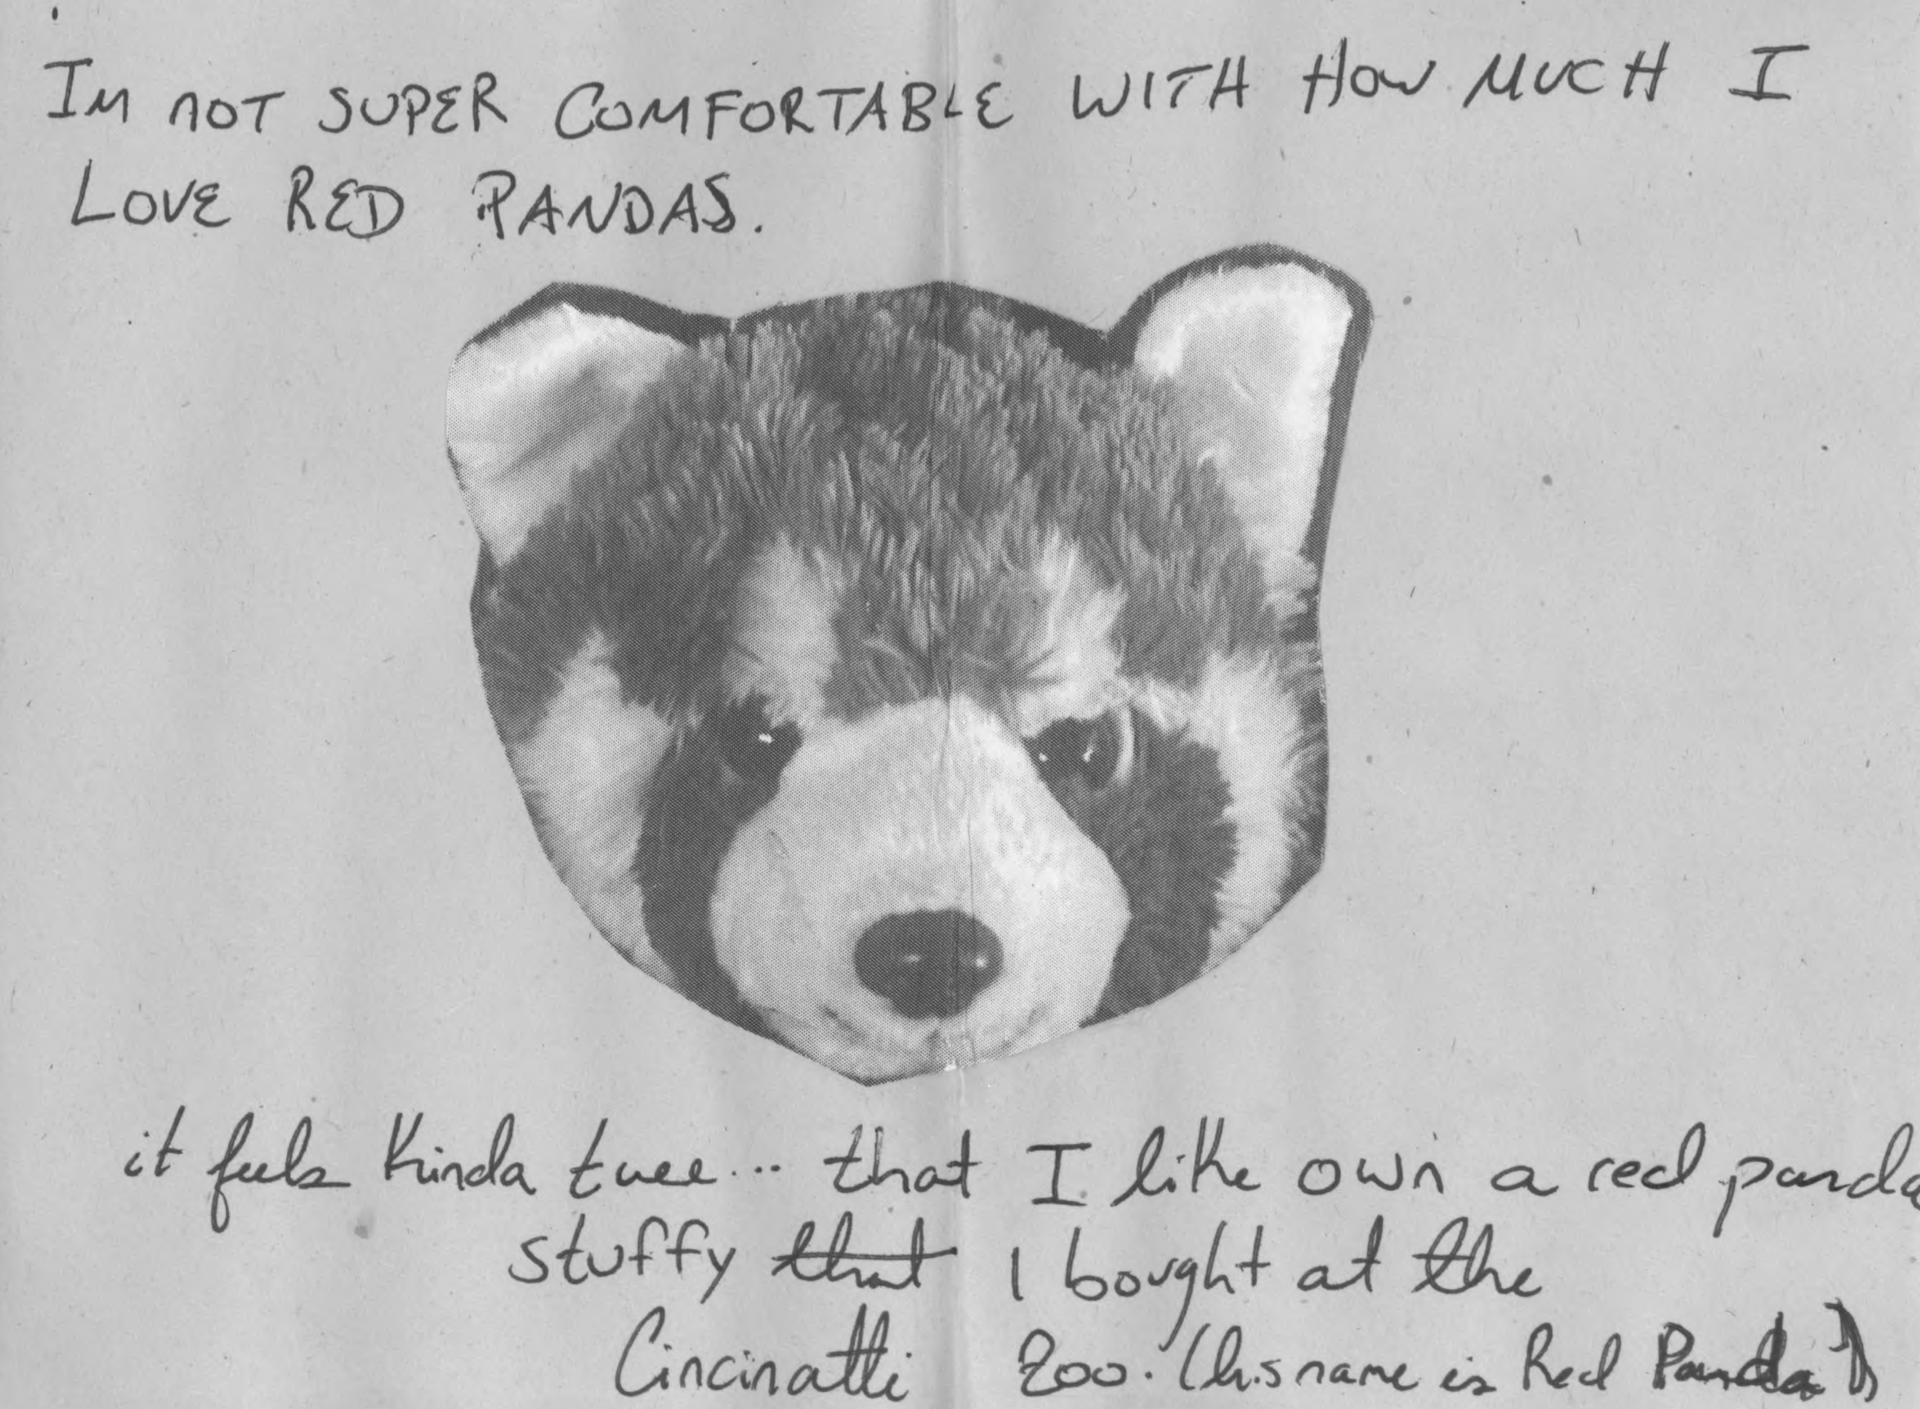 IM NOT SUPER COMFORTABLE WITH HOW MUCH I
LOVE RED PANDAS.
it feels kinda twee... that I like own a red panda
stuffy that I bought at the
Cincinatti Zoo. (his name is Red Panda)